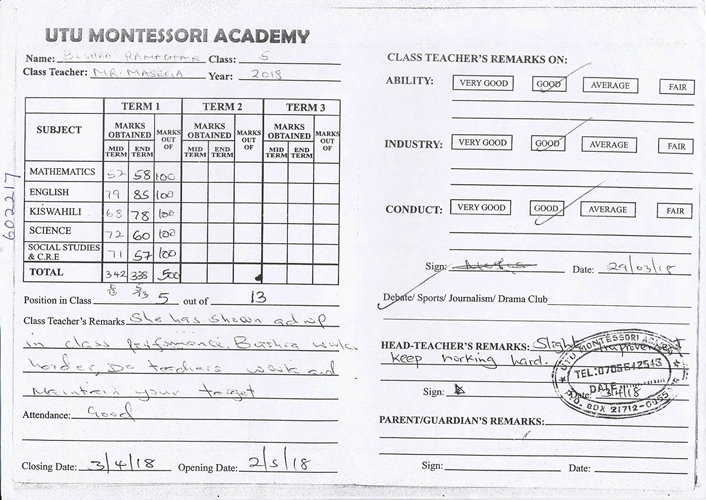 UTU MONTESSORI ACADEMY
Name: Bushra Ramadhan Class: 5
Class Teacher: MR. MASERIA Year: 2018
TERM 1 TERM 2 TERM 3
SUBJECT MARKS OBTAINED MARKS OUT OF MARKS OBTAINED MARKS OUT OF MARKS OBTAINED MARKS OUT OF
MID TERM END TERM MID TERM END TERM MID TERM END TERM
MATHEMATICS 52 58 100
ENGLISH 79 85 100
KISWAHILI 68 78 100
SCIENCE 72 60 100
SOCIAL STUDIES & C.R.E 71 57 100
TOTAL 342 338 500
Position in Class 5 out of 13
Class Teacher's Remarks She has shown a drop
in class performance. Bushra work
harder, Do teachers work and
Maintain your target
Attendance: Good
Closing Date: 3/4/18 Opening Date: 2/5/18
602217
CLASS TEACHER'S REMARKS ON:
ABILITY: VERY GOOD GOOD AVERAGE FAIR
INDUSTRY: VERY GOOD GOOD AVERAGE FAIR
CONDUCT: VERY GOOD GOOD AVERAGE FAIR
Sign: Date: 29/03/18
Debate/ Sports/ Journalism/ Drama Club
HEAD-TEACHER'S REMARKS: Slight improvement
keep working hard.
Sign: Date: 3/4/18
UTU MONTESSORI ACADEMY
TEL: 0705642543
DATE
P.O. BOX 21712-00505
PARENT/GUARDIAN'S REMARKS:
Sign: Date: